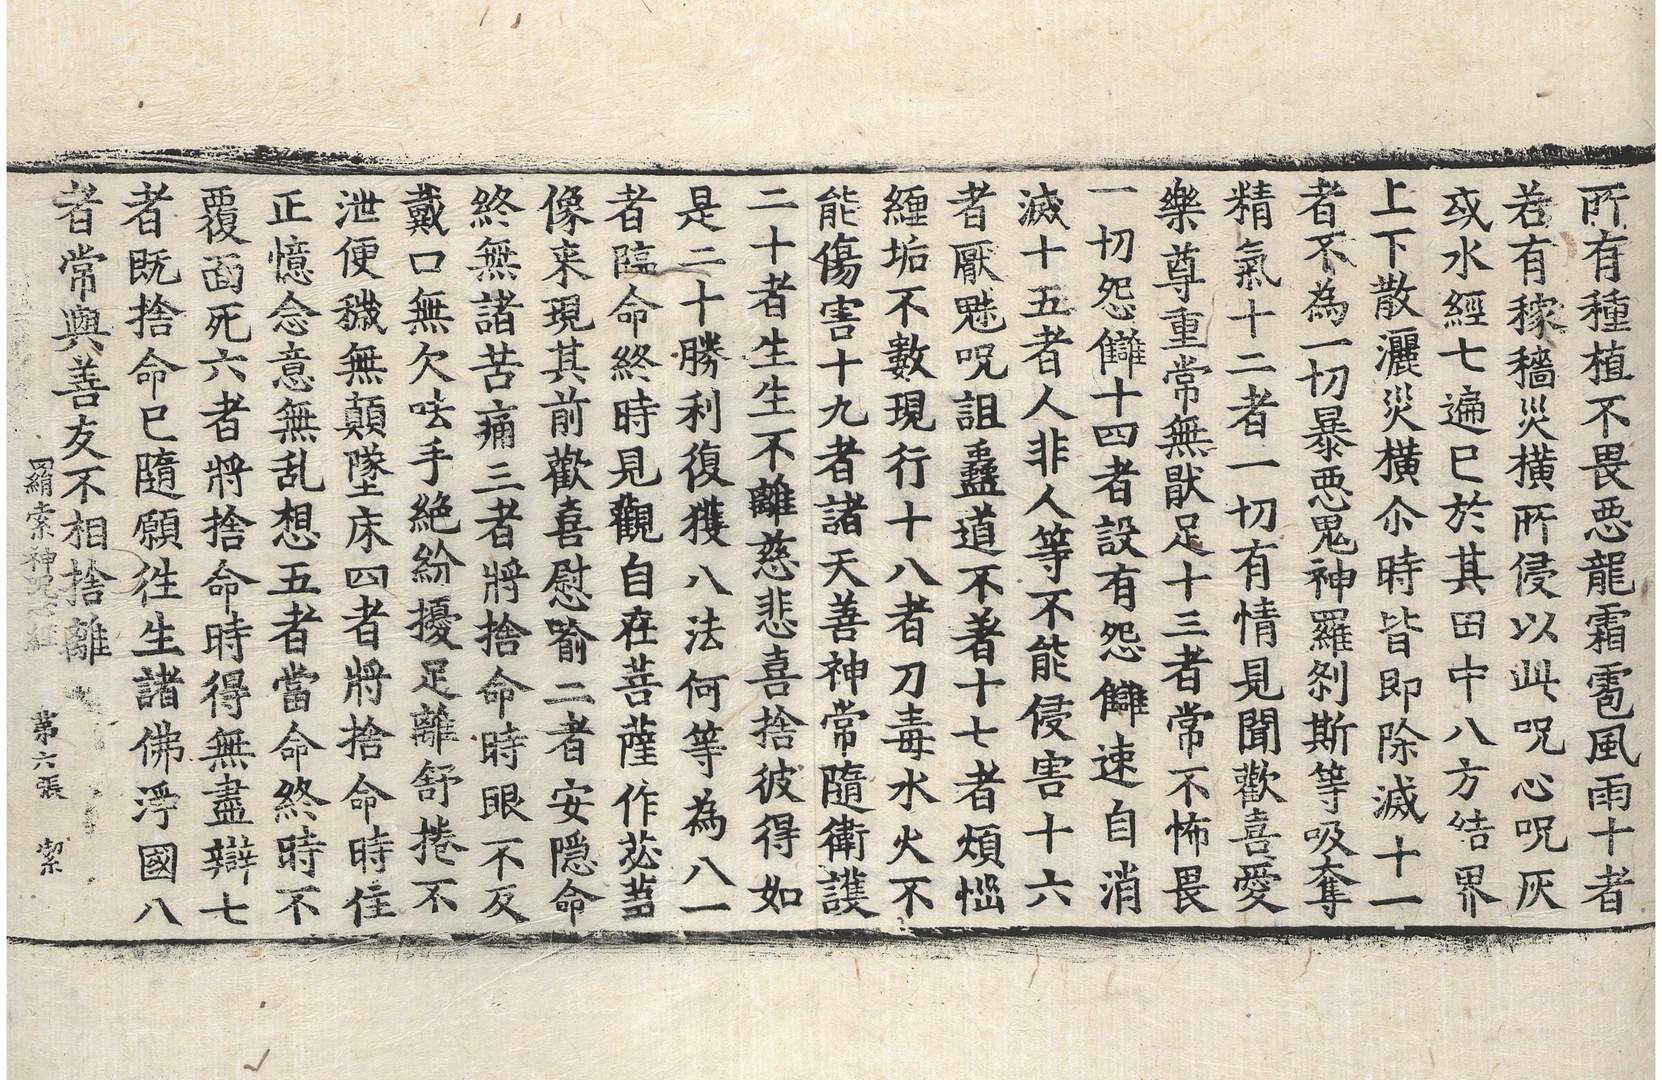 所有種植不畏惡龍霜雹風雨十者
若有稼穡災橫所侵以此呪心呪灰
或水經七遍已於其田中八方結界
上下散灑災橫尒時皆即除滅十一
者不為一切暴惡鬼神羅剎斯等吸奪
精氣十二者一切有情見聞歡喜愛
樂尊重常無猒足十三者常不怖畏
一切怨讎十四者設有怨讎速自消
滅十五者人非人等不能侵害十六
者厭魅呪詛蠱道不著十七者煩惱
纏垢不數現行十八者刀毒水火不
能傷害十九者諸天善神常隨衛護
二十者生生不離慈悲喜捨彼得如
是二十勝利復獲八法何等為八一
者臨命終時見觀自在菩薩作苾蒭
像来現其前歡喜慰喻二者安隱命
終無諸苦痛三者將捨命時眼不反
戴口無欠呿手絶紛擾足離舒捲不
泄便穢無顛墜床四者將捨命時住
正憶念意無乱想五者當命終時不
覆面死六者將捨命時得無盡辯七
者既捨命已隨願往生諸佛淨國八
者常與善友不相捨離
羂索神呪心經 第六張 潔